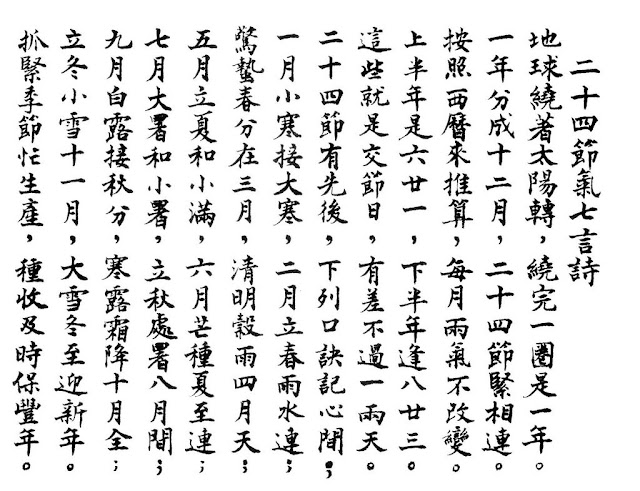 二十四節氣七言詩
地球繞著太陽轉，繞完一圈是一年。
一年分成十二月，二十四節緊相連。
按照西曆來推算，每月兩氣不改變。
上半年是六廿一，下半年逢八廿三。
這些就是交節日，有差不過一兩天。
二十四節有先後，下列口訣記心間；
一月小寒接大寒，二月立春雨水連；
驚蟄春分在三月，清明穀雨四月天；
五月立夏和小滿，六月芒種夏至連；
七月大署和小署，立秋處署八月間；
九月白露接秋分，寒露霜降十月全；
立冬小雪十一月，大雪冬至迎新年。
抓緊季節忙生產，種收及時保豐年。